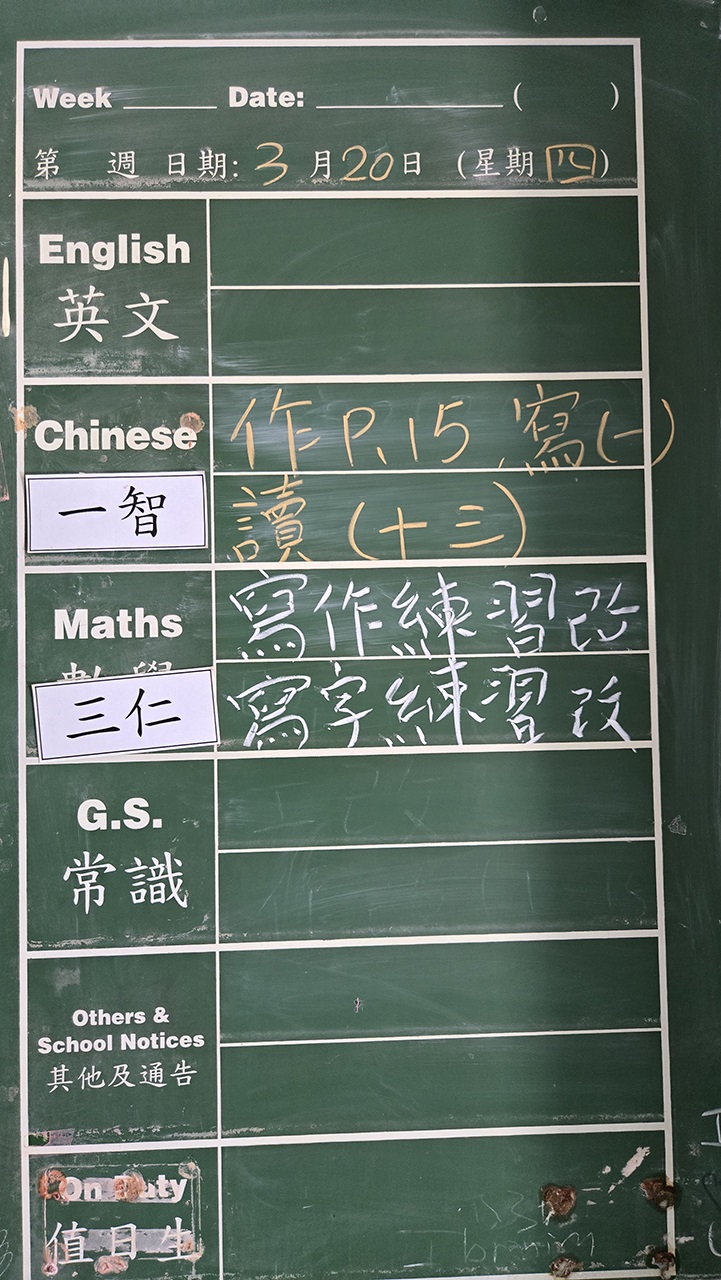 Week ______ Date: ____________ (      )
第 週 日期: 3 月 20 日 (星期 四)
English
英文
Chinese
作 P.15 寫(一)
一智
讀 (十三)
Maths
寫作練習改
三仁
寫字練習改
G.S.
常識
Others &
School Notices
其他及通告
On Duty
值日生